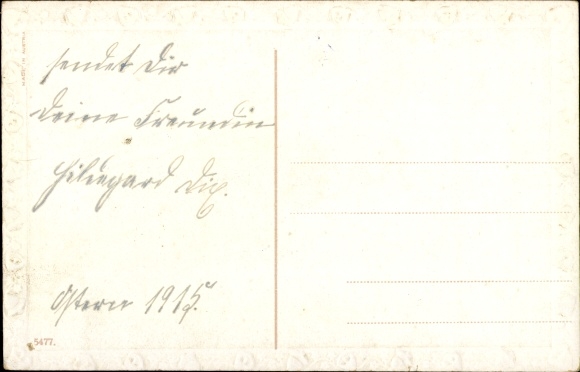 sendet Dir
Deine Freundin
Hildegard Dix.
Ostern 1915.
5477.